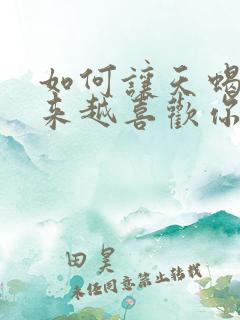 如何讓天蝎
来越喜歡你
田昊
未經同意禁止轉載